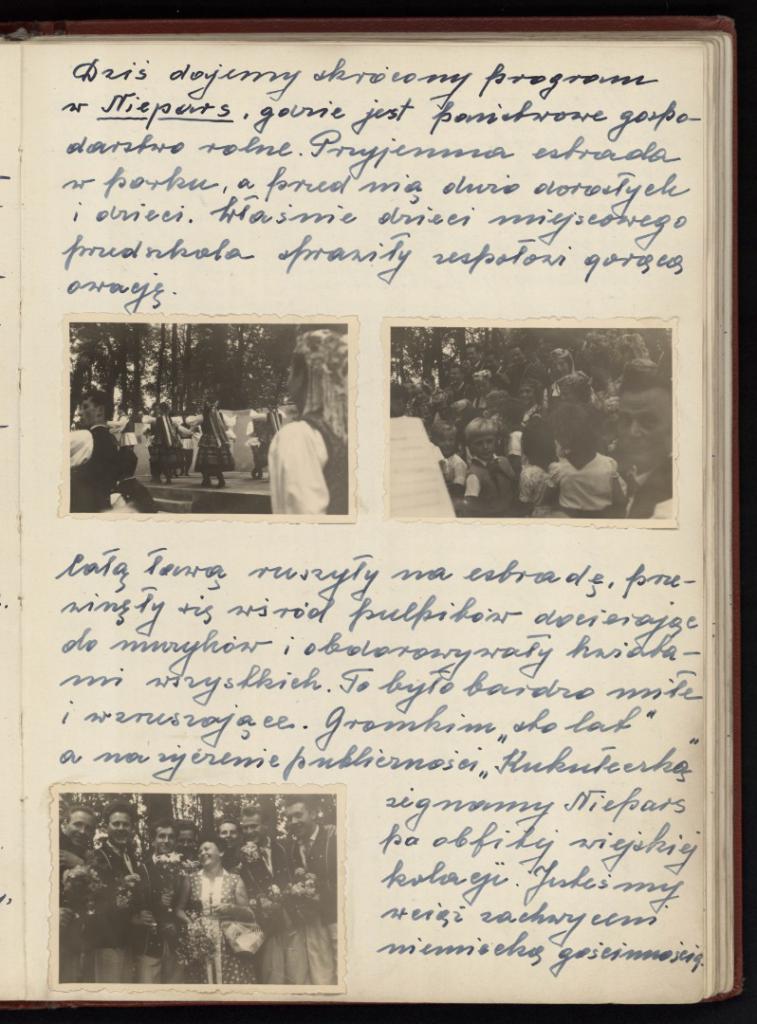 Dziś dajemy skrócony program
w Niepars, gdzie jest państwowe gospo-
darstwo rolne. Przyjemna estrada
w parku, a przed nią dużo dorosłych
i dzieci. Właśnie dzieci miejscowego
przedszkola sprawiły zespołowi gorącą
owację.
Całą ławą ruszyły na estradę, prze-
winęły się wśród pulpitów docierając
do muzyków i obdarowywały kwiata-
mi wszystkich. To było bardzo miłe
i wzruszające. Gromkim „sto lat"
a na życzenie publiczności „Kukułeczką"
żegnamy Niepars
po obfitej wiejskiej
kolacji. Jesteśmy
wciąż zachwyceni
niemiecką gościnnością.